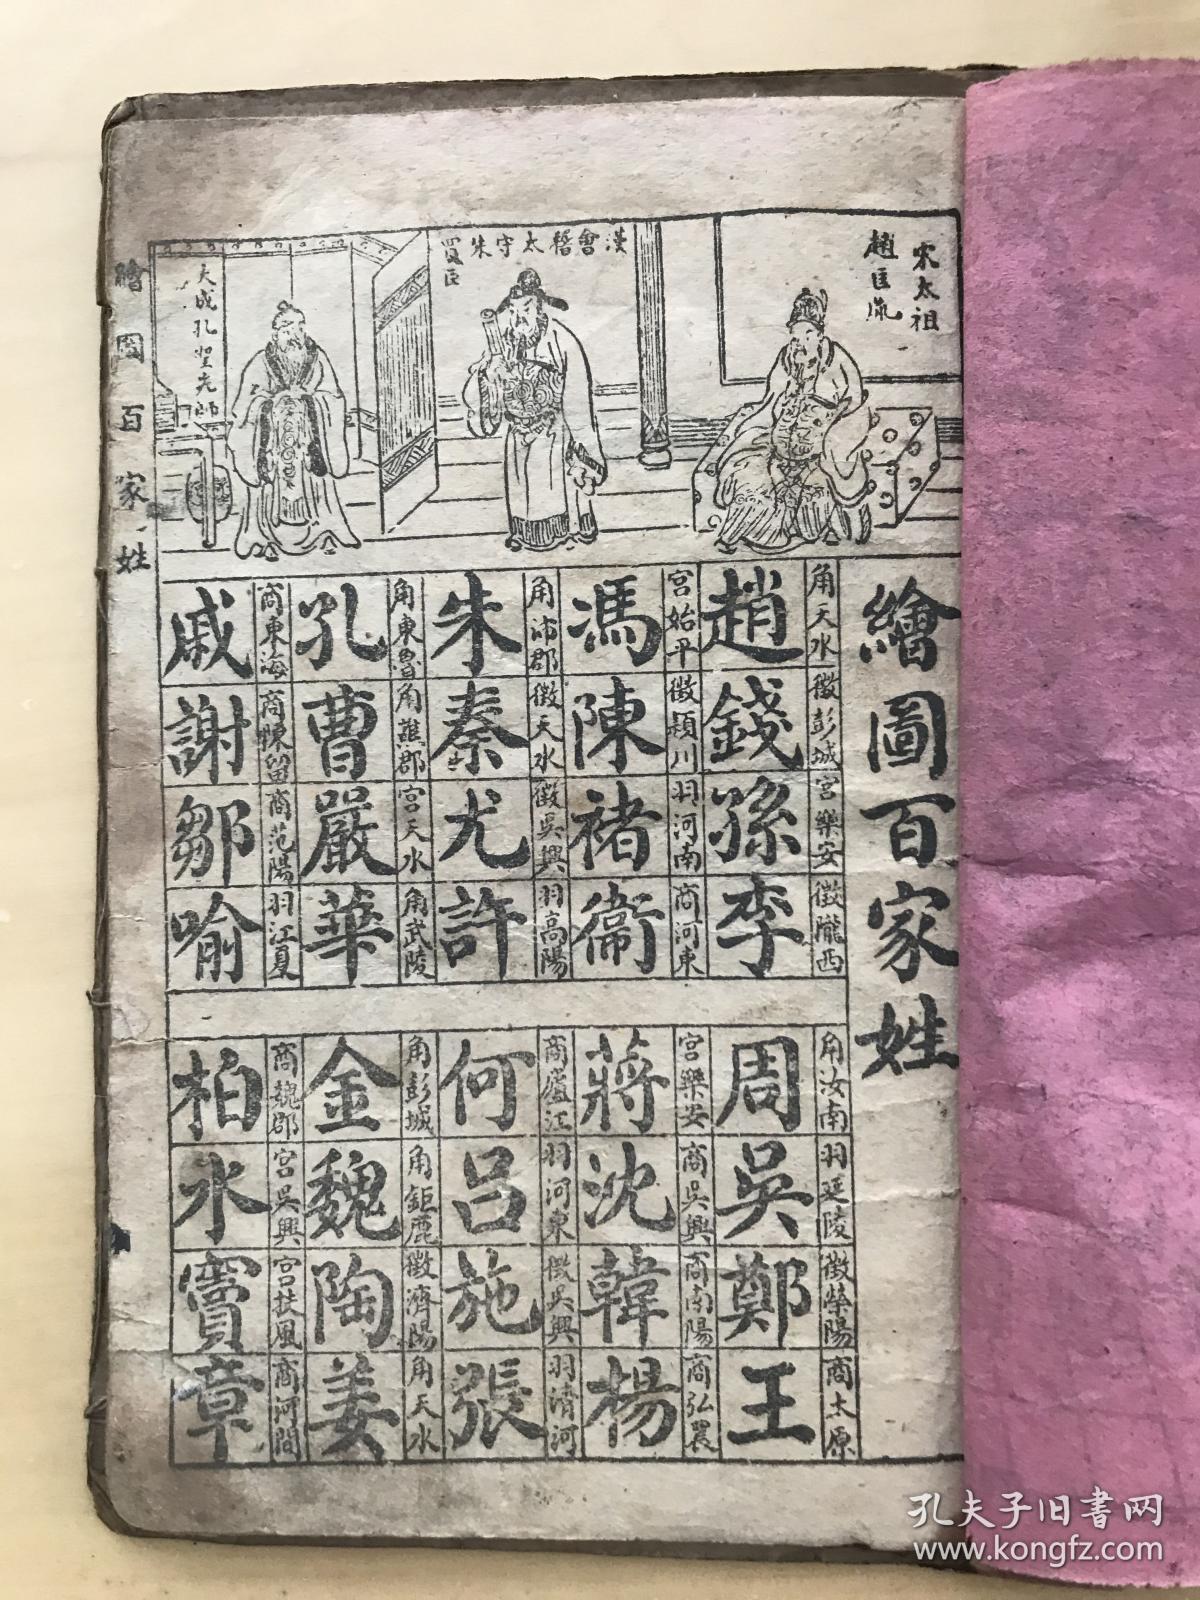 宋太祖
趙匡胤
漢會稽太守朱
買臣
大成孔聖先師
繪圖百家姓
角天水 徵彭城 宮樂安 徵隴西
趙錢孫李
宮始平 徵潁川 羽河南 商河東
馮陳褚衞
角沛郡 徵天水 徵吳興 羽高陽
朱秦尤許
角東魯 角譙郡 宮天水 角武陵
孔曹嚴華
商東海 商陳留 商范陽 羽江夏
戚謝鄒喻
角汝南 羽延陵 徵滎陽 商太原
周吳鄭王
宮樂安 商吳興 商南陽 商弘農
蔣沈韓楊
商廬江 羽河東 徵吳興 羽清河
何呂施張
角彭城 角鉅鹿 徵濟陽 角天水
金魏陶姜
商魏郡 宮吳興 宮扶風 商河間
柏水竇章
繪圖百家姓
孔夫子旧书网
www.kongfz.com